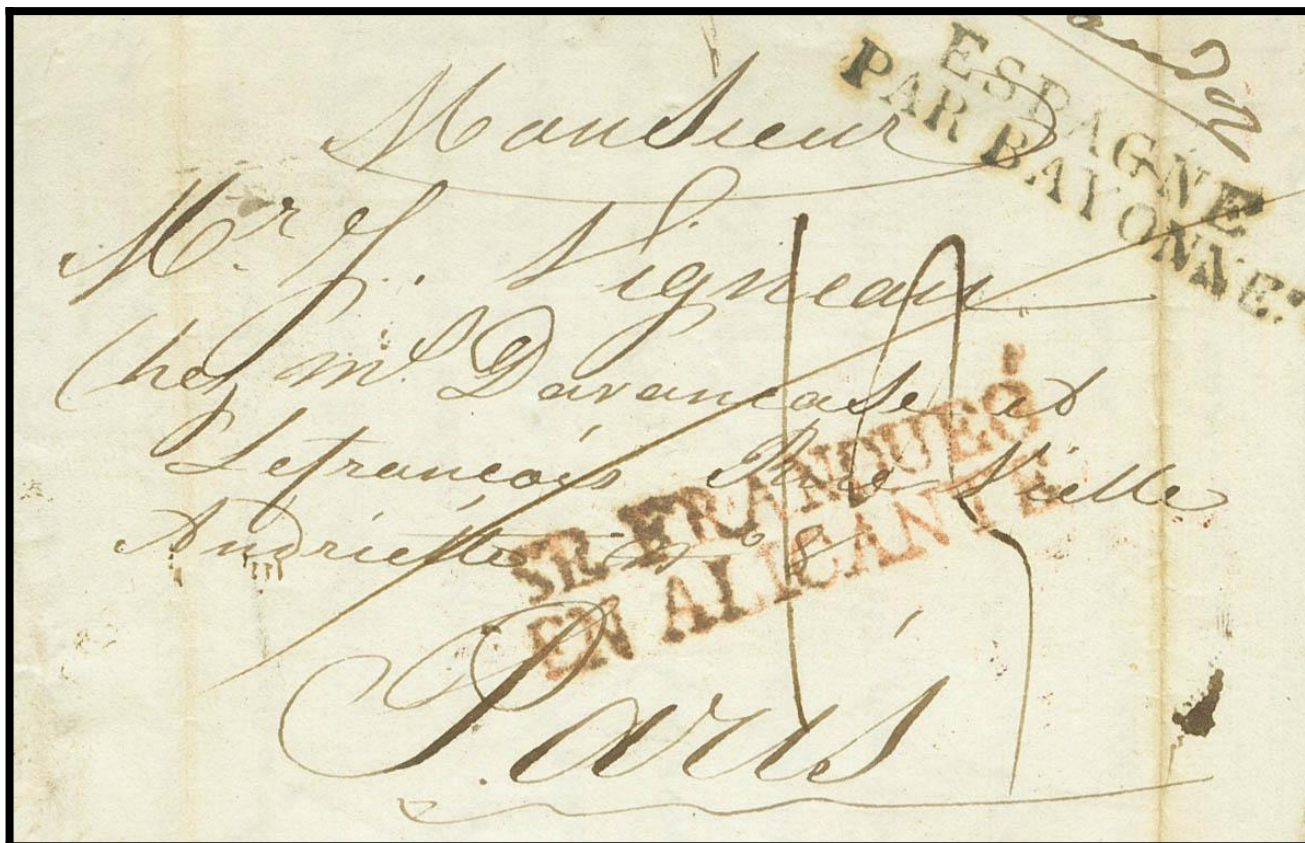 ESPAGNE
PAR BAYONNE.
Monsieur
Mr. J. Vigneau
Chez Mrs. Davancase et
Lefrançois Rue Vielle
Andriette no 8
SE FRANQUEO
EN ALICANTE
Paris